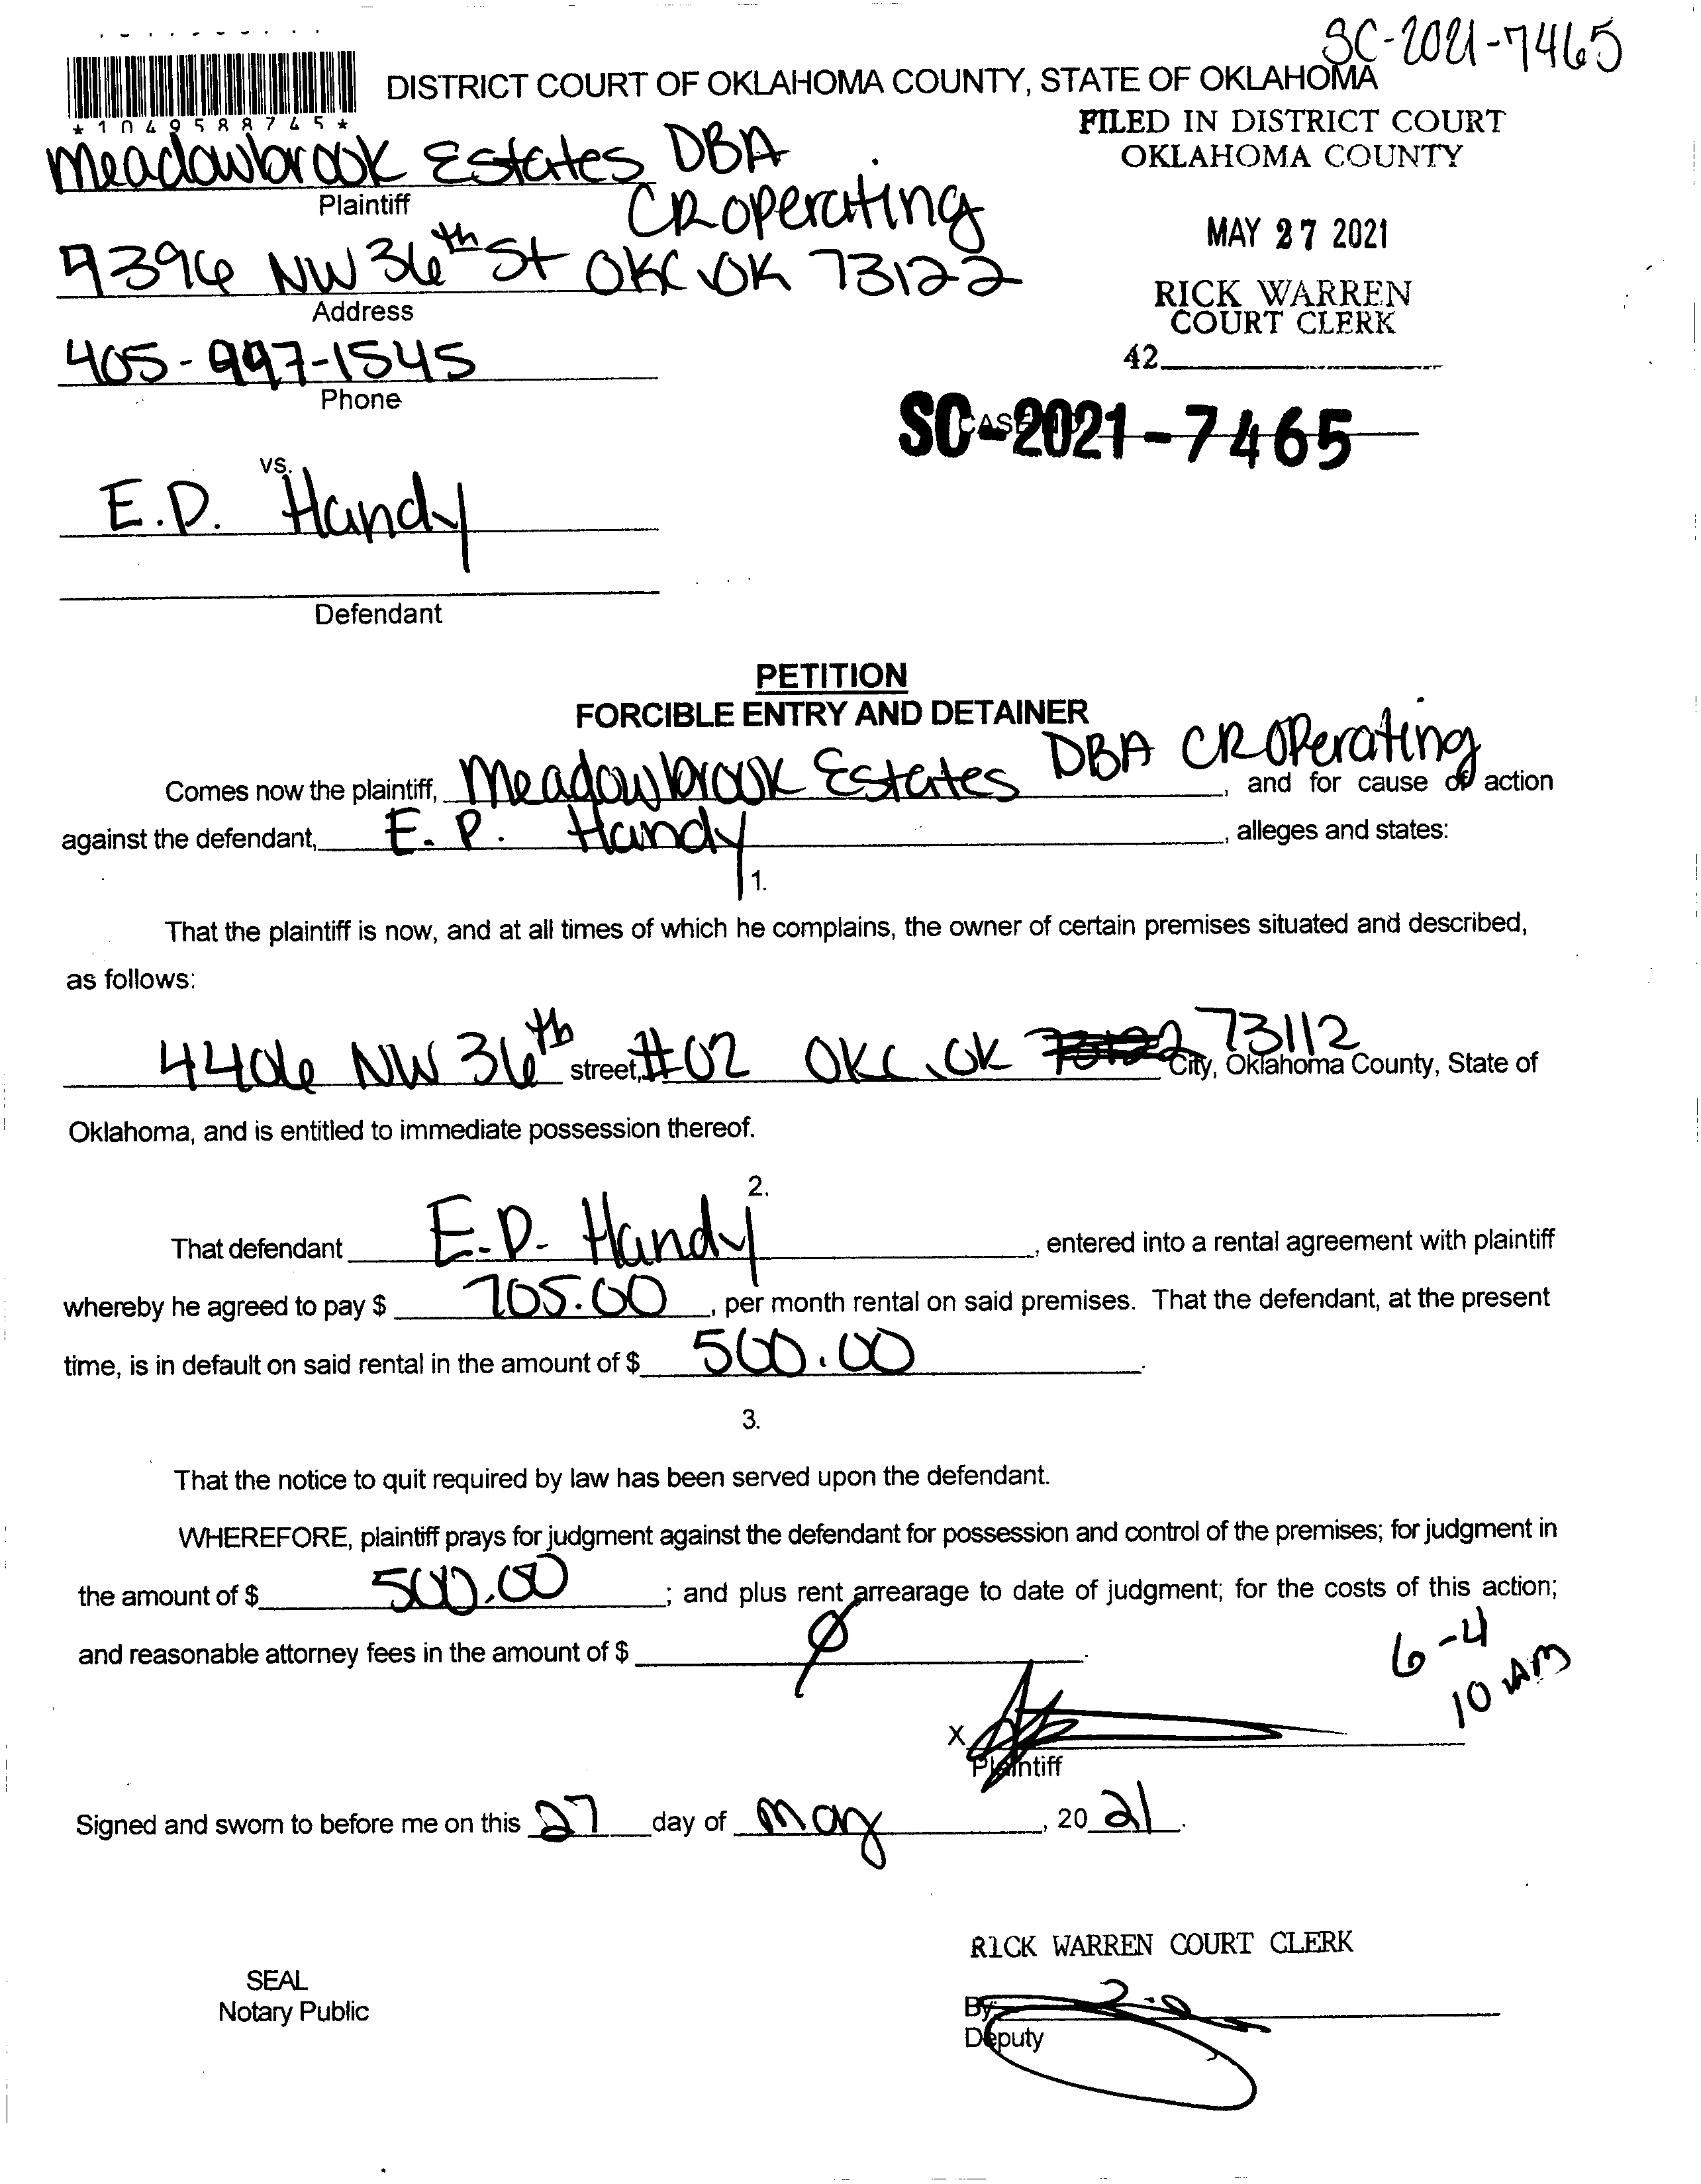 SC-2021-7465
DISTRICT COURT OF OKLAHOMA COUNTY, STATE OF OKLAHOMA
*1049588745*
FILED IN DISTRICT COURT
OKLAHOMA COUNTY
Meadowbrook Estates DBA
CR operating
Plaintiff
MAY 27 2021
9396 NW 36th St OKC, OK 73122
Address
RICK WARREN
COURT CLERK
405-997-1545
Phone
42
SC-2021-7465
vs.
E.D. Handy
Defendant
PETITION
FORCIBLE ENTRY AND DETAINER
Comes now the plaintiff, Meadowbrook Estates DBA CR Operating, and for cause of action
against the defendant, E. P. Handy, alleges and states:
1.
That the plaintiff is now, and at all times of which he complains, the owner of certain premises situated and described,
as follows:
4406 NW 36th street, #02 OKC, OK 73122 73112 City, Oklahoma County, State of
Oklahoma, and is entitled to immediate possession thereof.
2.
That defendant E.D. Handy, entered into a rental agreement with plaintiff
whereby he agreed to pay $ 705.00, per month rental on said premises. That the defendant, at the present
time, is in default on said rental in the amount of $ 500.00.
3.
That the notice to quit required by law has been served upon the defendant.
WHEREFORE, plaintiff prays for judgment against the defendant for possession and control of the premises; for judgment in
the amount of $ 500.00; and plus rent arrearage to date of judgment; for the costs of this action;
and reasonable attorney fees in the amount of $ Ø.
6-4
10 AM
X
Plaintiff
Signed and sworn to before me on this 27 day of May, 2021.
RICK WARREN COURT CLERK
SEAL
Notary Public
By:
Deputy